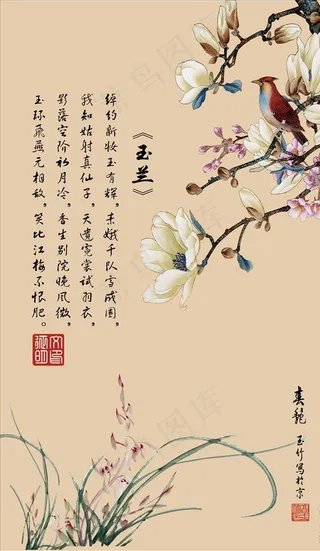 《玉兰》
绰约新妆玉有辉,素娥千队雪成围,
我知姑射真仙子,天遗霓裳试羽衣,
影落空阶初月冷,香生别院晚风微,
玉环飞燕元相敌,笑比江梅不恨肥。
春艷
玉竹写於京